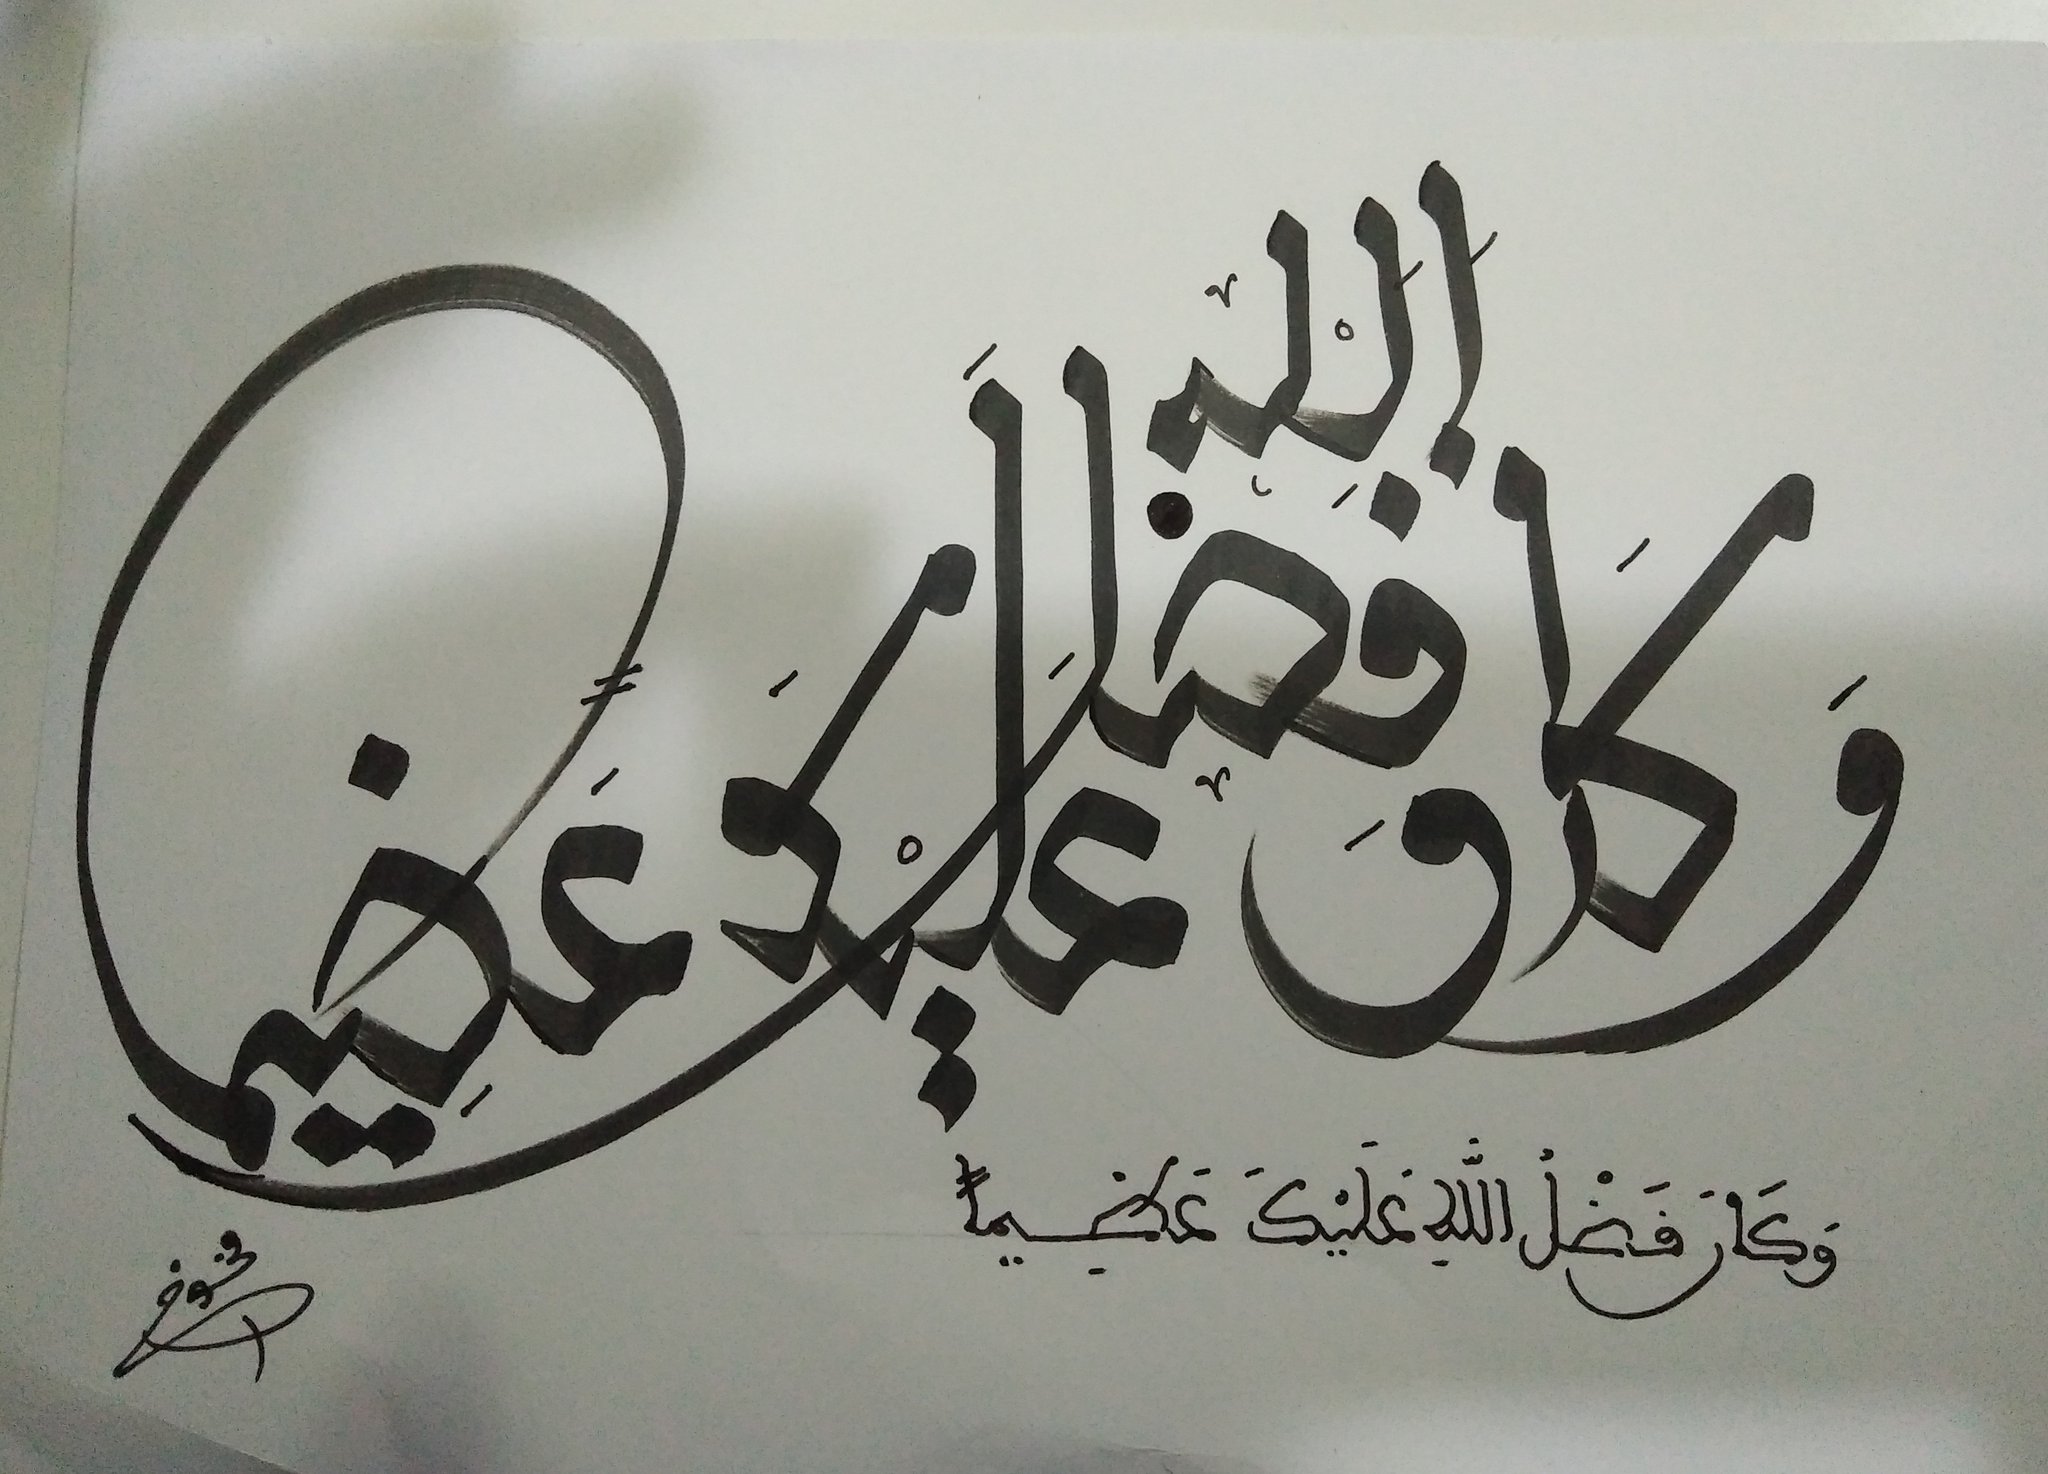 وكان فضل الله عليك عظيما
وَكَانَ فَضْلُ اللَّهِ عَلَيْكَ عَظِيماً